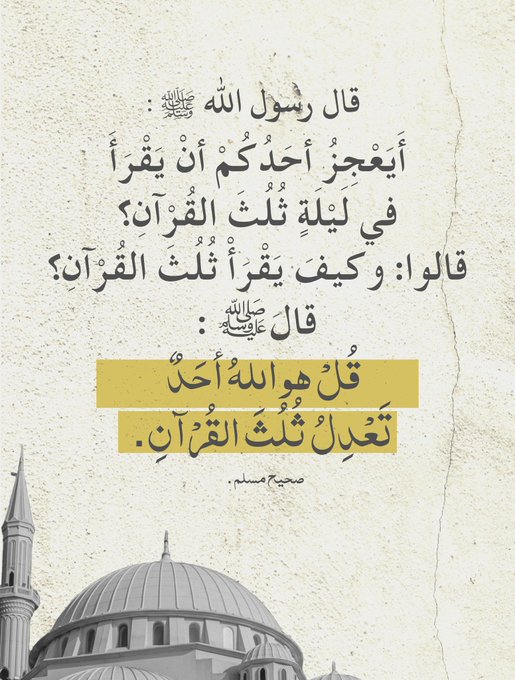 قال رسول الله ﷺ :
أَيَعْجِزُ أحَدُكُمْ أنْ يَقْرَأَ
في لَيْلَةٍ ثُلُثَ القُرْآنِ؟
قالوا: وكيفَ يَقْرَأْ ثُلُثَ القُرْآنِ؟
قالَ ﷺ :
قُلْ هو اللهُ أحَدٌ
تَعْدِلُ ثُلُثَ القُرْآنِ.
صحيح مسلم.